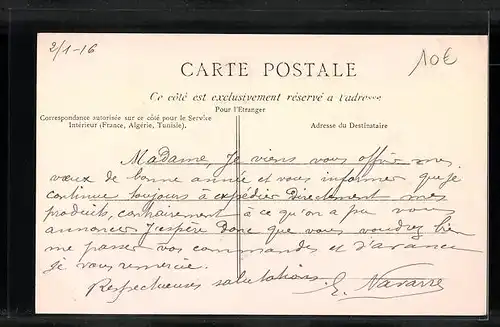 2/1-16
10€
CARTE POSTALE
Ce côté est exclusivement réservé a l'adresse
Pour l'Etranger
Correspondance autorisée sur ce côté pour le Service
Intérieur (France, Algérie, Tunisie).
Adresse du Destinataire
Madame, Je viens vous offrir mes
vœux de bonne année et vous informer que je
continue toujours à expédier Directement mes
produits, contrairement à ce qu'on a pu vous
annoncer J'espère Donc que vous voudrez bien
me passer vos commandes et d'avance
je vous remercie.
Respectueuses salutations.
E. Navarre